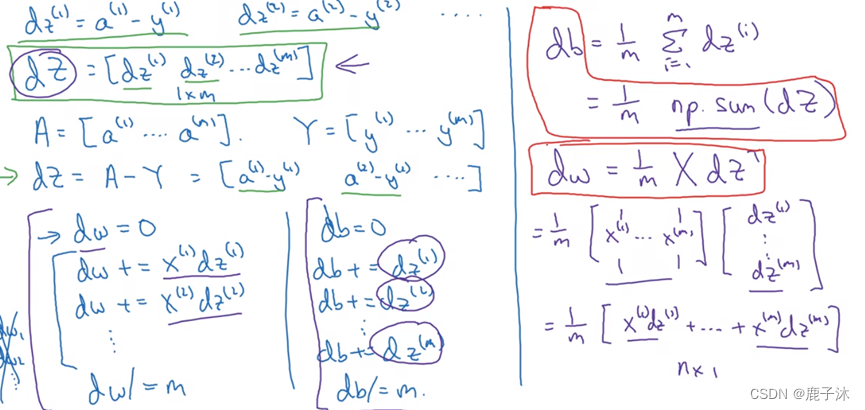 dz⁽¹⁾ = a⁽¹⁾ - y⁽¹⁾ dz⁽²⁾ = a⁽²⁾ - y⁽²⁾ ....
dZ = [dz⁽¹⁾ dz⁽²⁾ ... dz⁽ᵐ⁾] ←
1×m
A = [a⁽¹⁾ .... a⁽ᵐ⁾]. Y = [y⁽¹⁾ ... y⁽ᵐ⁾]
→ dZ = A - Y = [a⁽¹⁾-y⁽¹⁾ a⁽²⁾-y⁽²⁾ ....]
→ dw = 0
dw += x⁽¹⁾dz⁽¹⁾
dw += x⁽²⁾dz⁽²⁾
⋮
dw /= m
dw₁
dw₂
⋮
db = 0
db += dz⁽¹⁾
db += dz⁽²⁾
⋮
db += dz⁽ᵐ⁾
db /= m.
db = 1/m Σᵢ₌₁ᵐ dz⁽ⁱ⁾
= 1/m np.sum(dZ)
dw = 1/m X dZᵀ
= 1/m [x⁽¹⁾ ... x⁽ᵐ⁾] [dz⁽¹⁾ ⋮ dz⁽ᵐ⁾]
= 1/m [x⁽¹⁾dz⁽¹⁾ + ... + x⁽ᵐ⁾dz⁽ᵐ⁾]
n×1
CSDN @鹿子沐